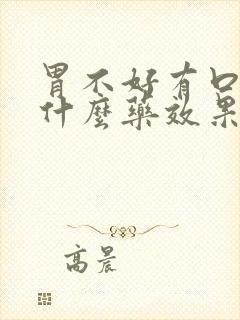 胃不好有口
什麼藥效果
高晨